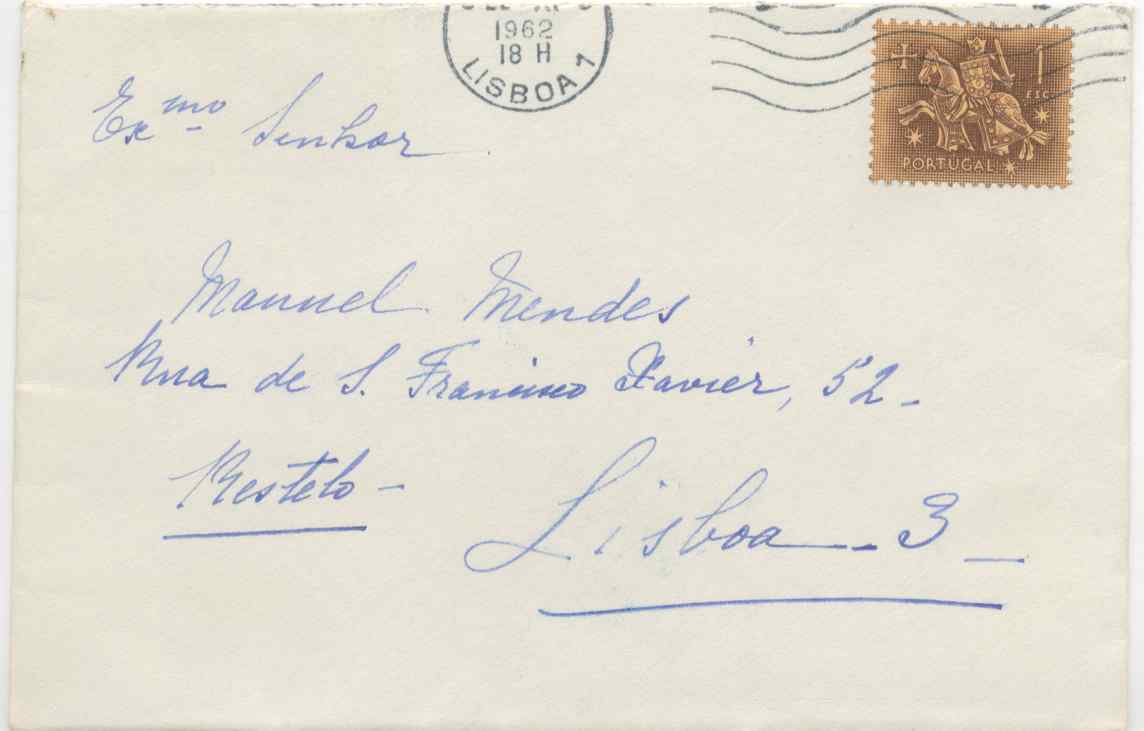 1962
18 H
LISBOA 1
1
ESC.
PORTUGAL
Exmo Senhor
Manuel Mendes
Rua de S. Francisco Xavier, 52-
Restelo-
Lisboa-3-